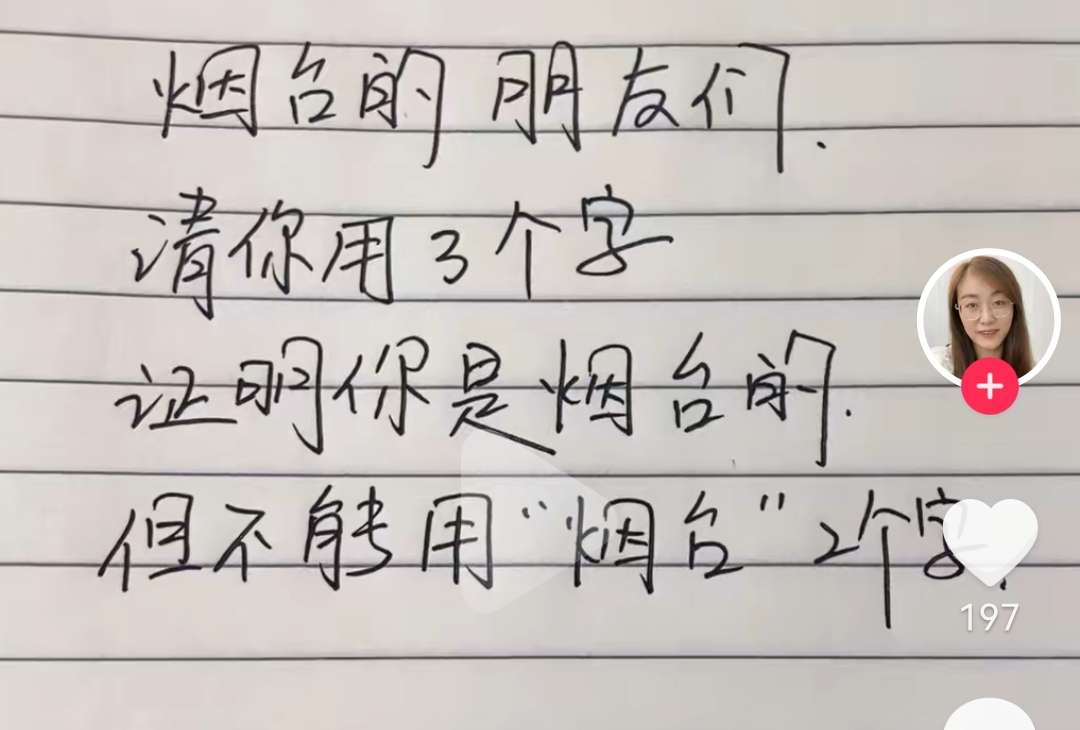 烟台的朋友们.
请你用3个字
证明你是烟台的.
但不能用“烟台”2个字.
197